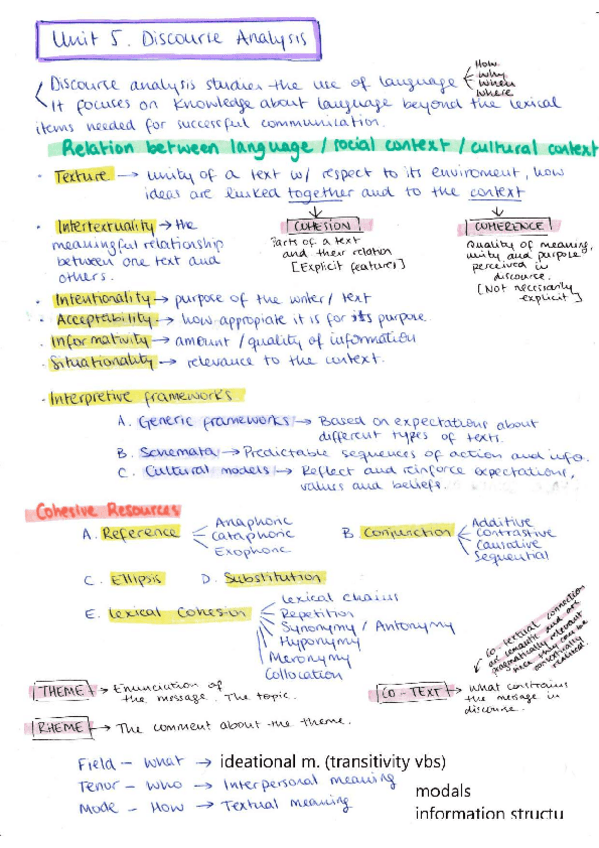 Unit 5. Discourse Analysis
Discourse analysis studies the use of language
How
Why
When
Where
It focuses on knowledge about language beyond the lexical
items needed for successful communication.
Relation between language / social context / cultural context
· Texture → unity of a text w/ respect to its enviroment, how
ideas are linked together and to the context
· Intertextuality → the
meaningful relationship
between one text and
others.
COHESION
Parts of a text
and their relation
[Explicit features]
COHERENCE
Quality of meaning,
unity and purpose
perceived in
discourse.
[Not necessarily
explicit]
· Intentionality → purpose of the writer/ text
· Acceptability → how appropiate it is for its purpose.
· Informativity → amount / quality of information
· Situationality → relevance to the context.
· Interpretive frameworks
A. Generic frameworks → Based on expectations about
different types of texts.
B. Schemata → Predictable sequences of action and info.
C. Cultural models → Reflect and reinforce expectations,
values and beliefs.
Cohesive Resources
A. Reference
Anaphoric
Cataphoric
Exophoric
B. Conjunction
Additive
Contrastive
Causative
Sequential
C. Ellipsis D. Substitution
E. Lexical Cohesion
Lexical chains
Repetition
Synonymy / Antonymy
Hyponymy
Meronymy
Collocation
Co-textual connection
are semantic and are
pragmatically relevant
once they can be
contextually
realized.
THEME → Enunciation of
the message. The topic.
CO-TEXT → what constrains
the message in
discourse.
RHEME → The comment about the theme.
Field - what → ideational m. (transitivity vbs)
Tenor - who → Interpersonal meaning
modals
Mode - How → Textual meaning
information structu